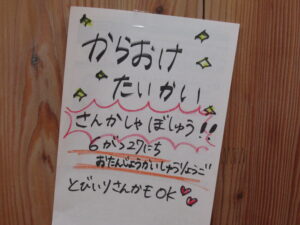 からおけ
たいかい
さんかしゃぼしゅう!!
6がつ27にち
おたんじょうかいしゅうりょうご
とびいりさんかもOK